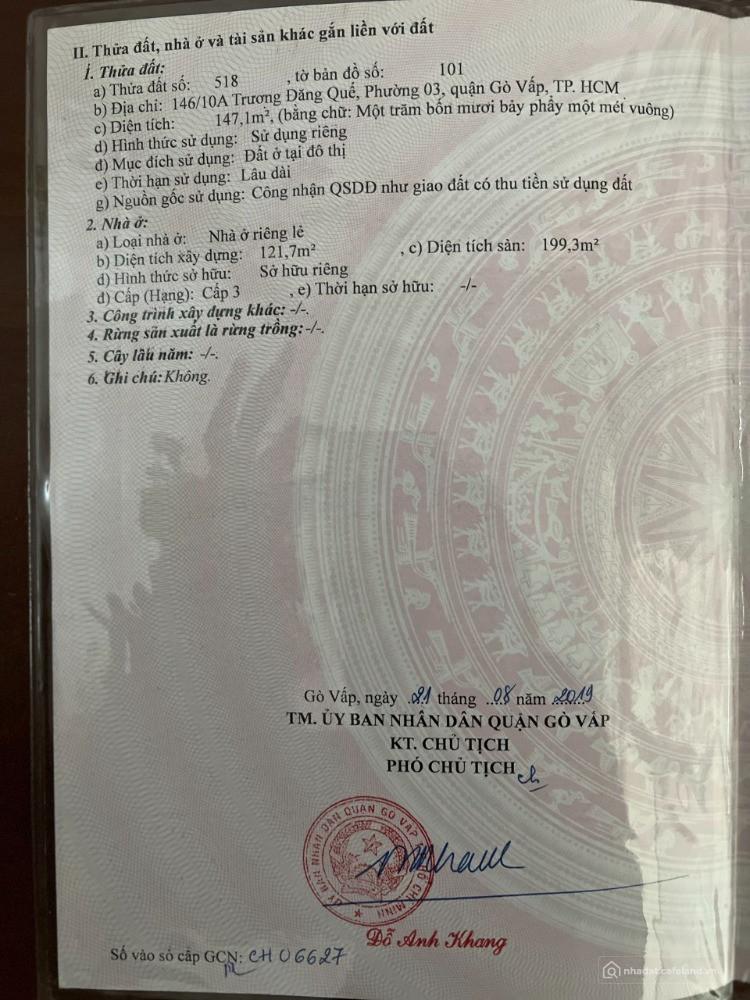 II. Thửa đất, nhà ở và tài sản khác gắn liền với đất
1. Thửa đất:
a) Thửa đất số: 518 , tờ bản đồ số: 101
b) Địa chỉ: 146/10A Trương Đăng Quế, Phường 03, quận Gò Vấp, TP. HCM
c) Diện tích: 147,1m², (bằng chữ: Một trăm bốn mươi bảy phẩy một mét vuông)
d) Hình thức sử dụng: Sử dụng riêng
đ) Mục đích sử dụng: Đất ở tại đô thị
e) Thời hạn sử dụng: Lâu dài
g) Nguồn gốc sử dụng: Công nhận QSDĐ như giao đất có thu tiền sử dụng đất
2. Nhà ở:
a) Loại nhà ở: Nhà ở riêng lẻ
b) Diện tích xây dựng: 121,7m² , c) Diện tích sàn: 199,3m²
d) Hình thức sở hữu: Sở hữu riêng
đ) Cấp (Hạng): Cấp 3 , e) Thời hạn sở hữu: -/-
3. Công trình xây dựng khác: -/-.
4. Rừng sản xuất là rừng trồng: -/-.
5. Cây lâu năm: -/-.
6. Ghi chú: Không.
Gò Vấp, ngày 21 tháng 08 năm 2019
TM. ỦY BAN NHÂN DÂN QUẬN GÒ VẤP
KT. CHỦ TỊCH
PHÓ CHỦ TỊCH
ỦY BAN NHÂN DÂN QUẬN GÒ VẤP
HỒ CHÍ MINH
Đỗ Anh Khang
Số vào sổ cấp GCN: CH06627
nhadat.cafeland.vn